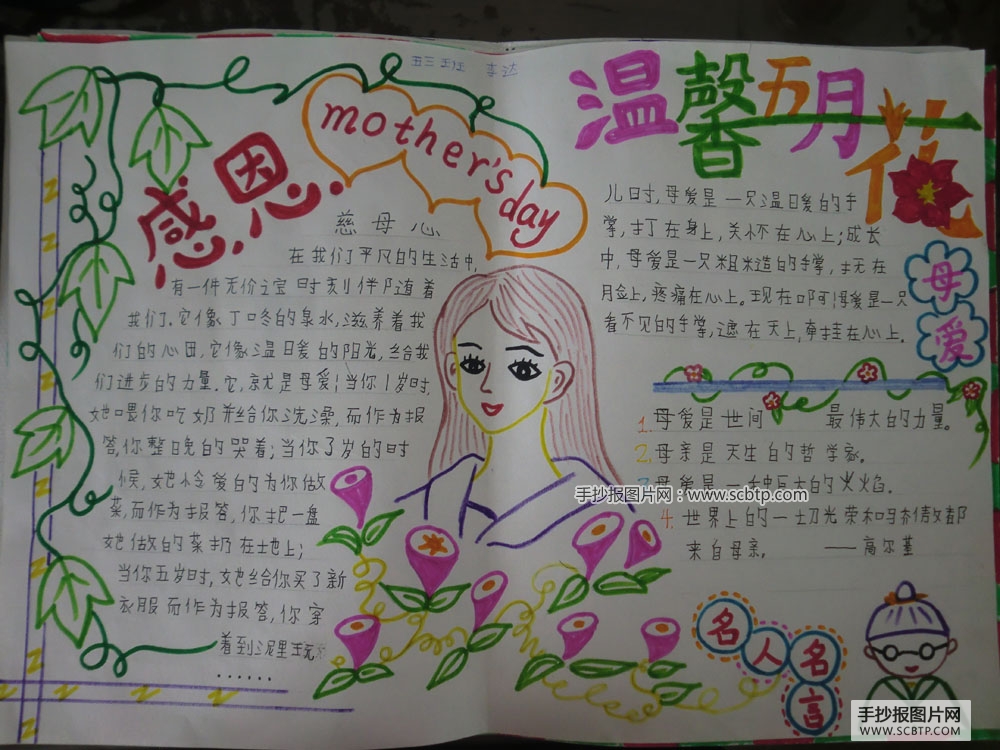 李达
mother's day
感恩
慈母心
在我们平凡的生活中,
有一件无价之宝时刻伴随着
我们.它像丁冬的泉水,滋养着我
们的心田,它像温暖的阳光,给我
们进步的力量.它,就是母爱!当你1岁时,
她喂你吃奶并给你洗澡,而作为报
答,你整晚的哭着;当你了岁的时
候,她怜爱的为你做
菜,而作为报答,你把一盘
她做的菜扔在地上;
当你五岁时,她给你买了新
衣服而作为报答,你穿
着到泥里玩
......
温馨五月花
母爱
儿时,母爱是一只温暖的手
掌,打在身上,关怀在心上;成长
中,母爱是一只粗糙的手掌,掴在
月佥上,疼痛在心上。现在叩可!母爱是一只
看不见的手掌,遮在天上,牵挂在心上。
1.母爱是世间 最伟大的力量。
2.母亲是天生的哲学家。
3.母爱是一种巨大的火焰。
4.世界上的一切光荣和骄傲都
来自母亲。 ——高尔基
名人名言
手抄报图片网:www.scbtp.com
手抄报图片网
WWW.SCBTP.COM